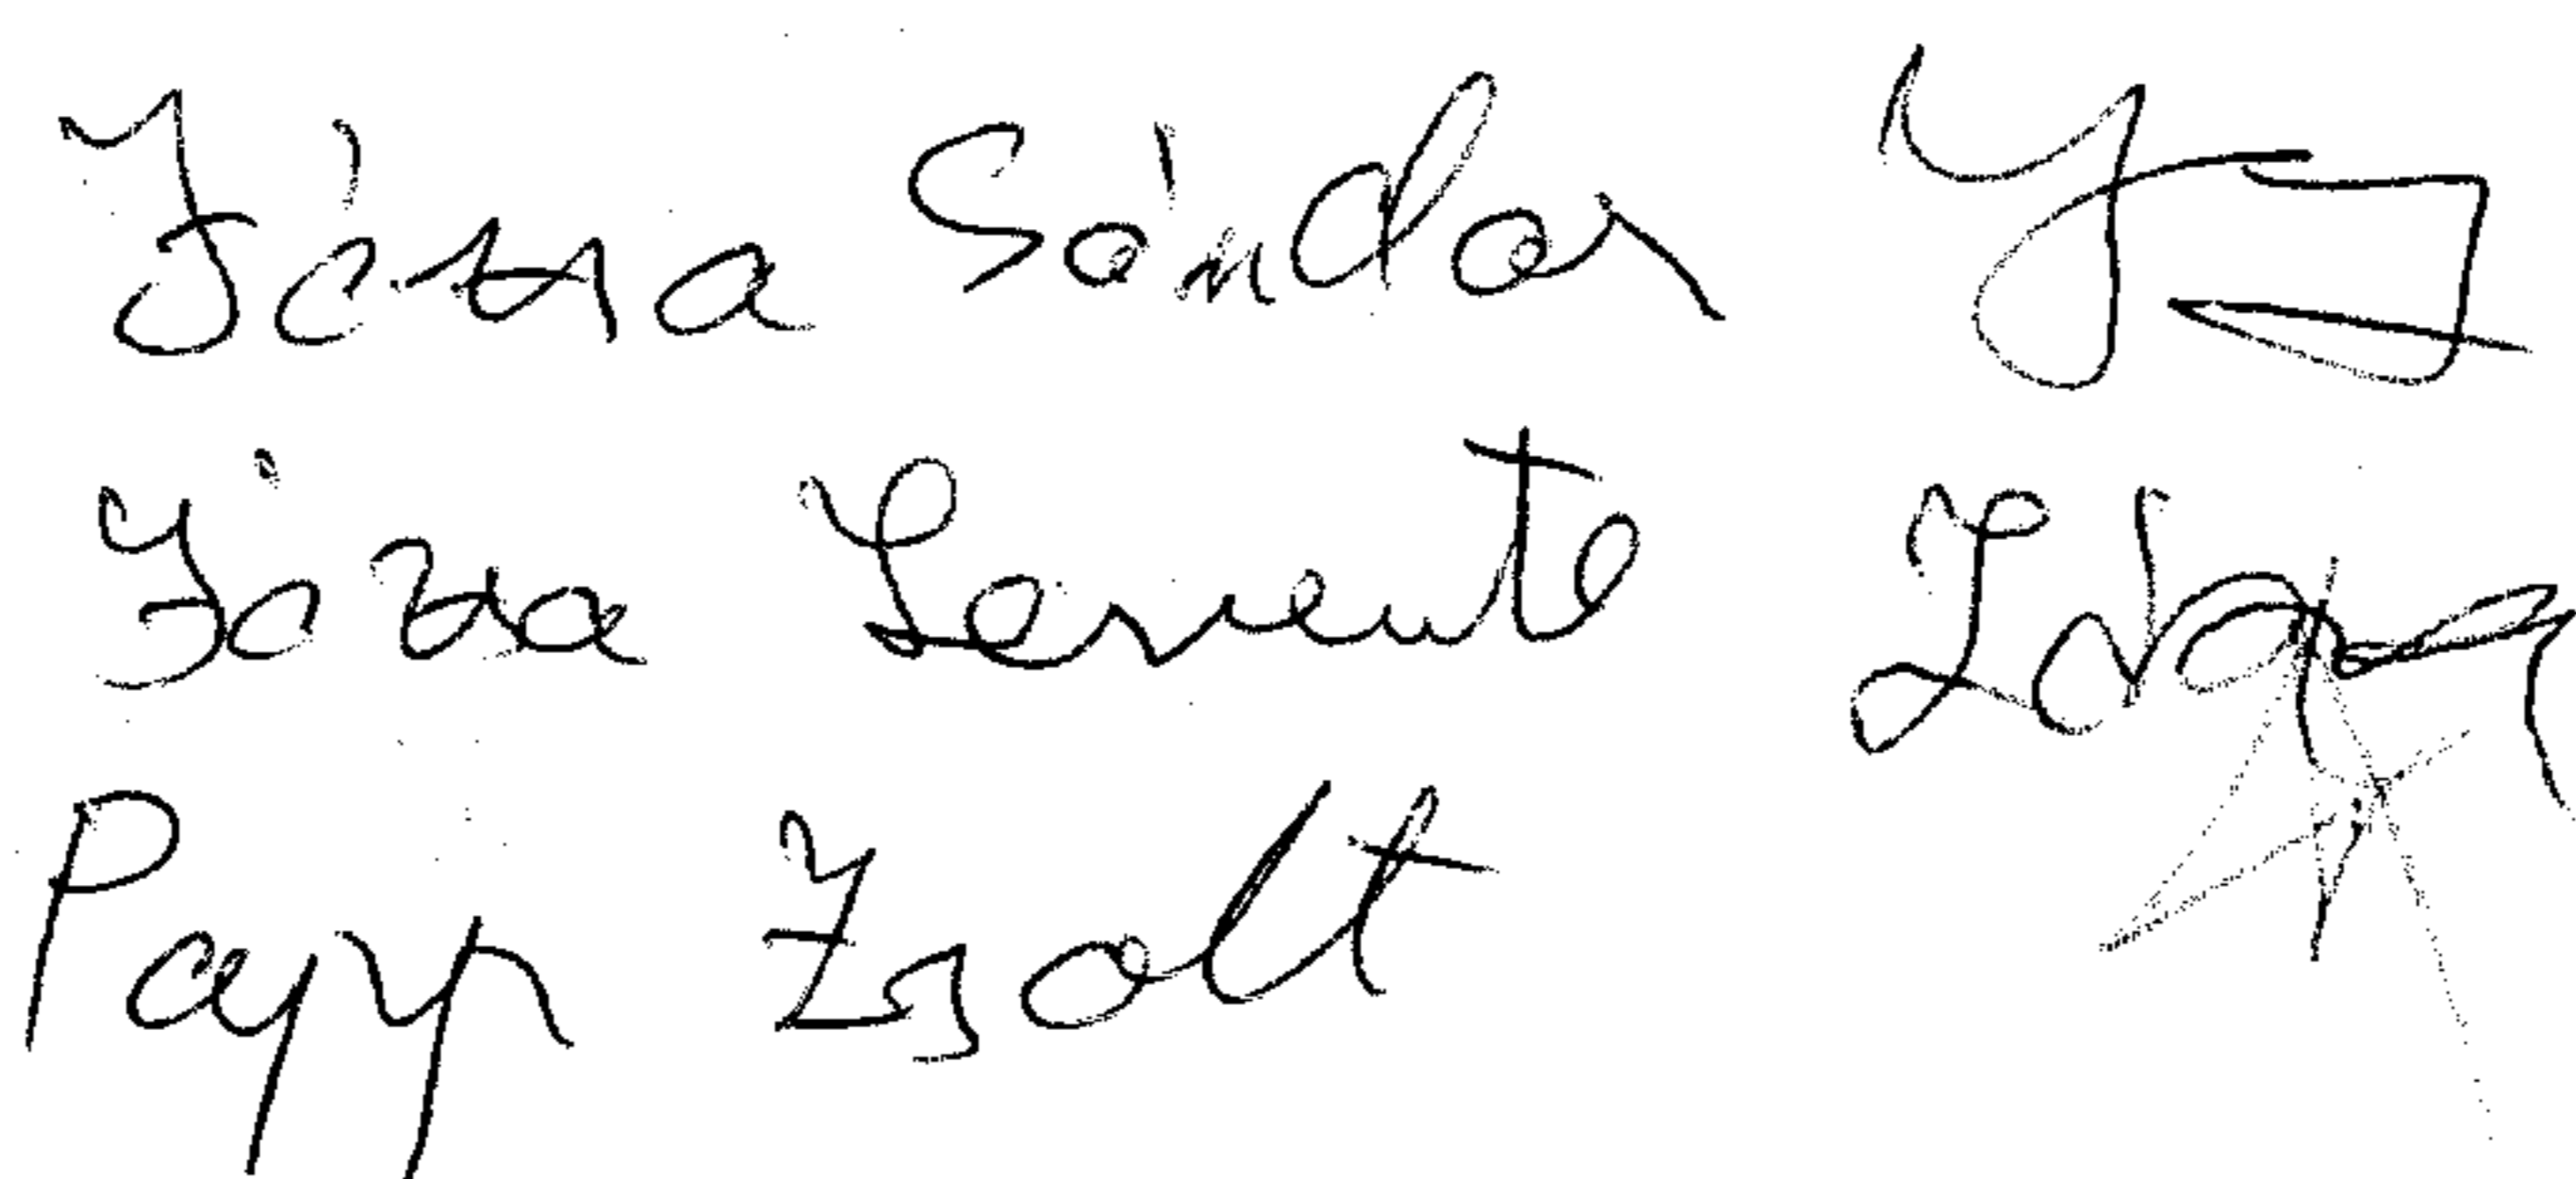 Józsa Sándor
Józsa Levente
Papp Zsolt